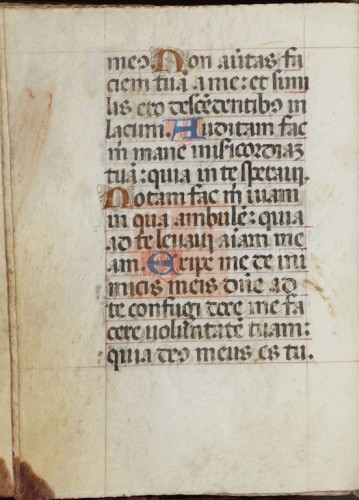 meus. Non avertas fa
ciem tuā a me: et simi
lis ero descēdentibus in
lacum. Auditam fac
m̄ mane misicordiaz
tuā: quia in te speravi.
Notam fac m̄ viam
in qua ambulē: quia
ad te levavi aīam me
am. Eripe me de ini
micis meis dn̄e ad
te confugi doce me fa
cere voluntatē tuam:
quia deus meus es tu.